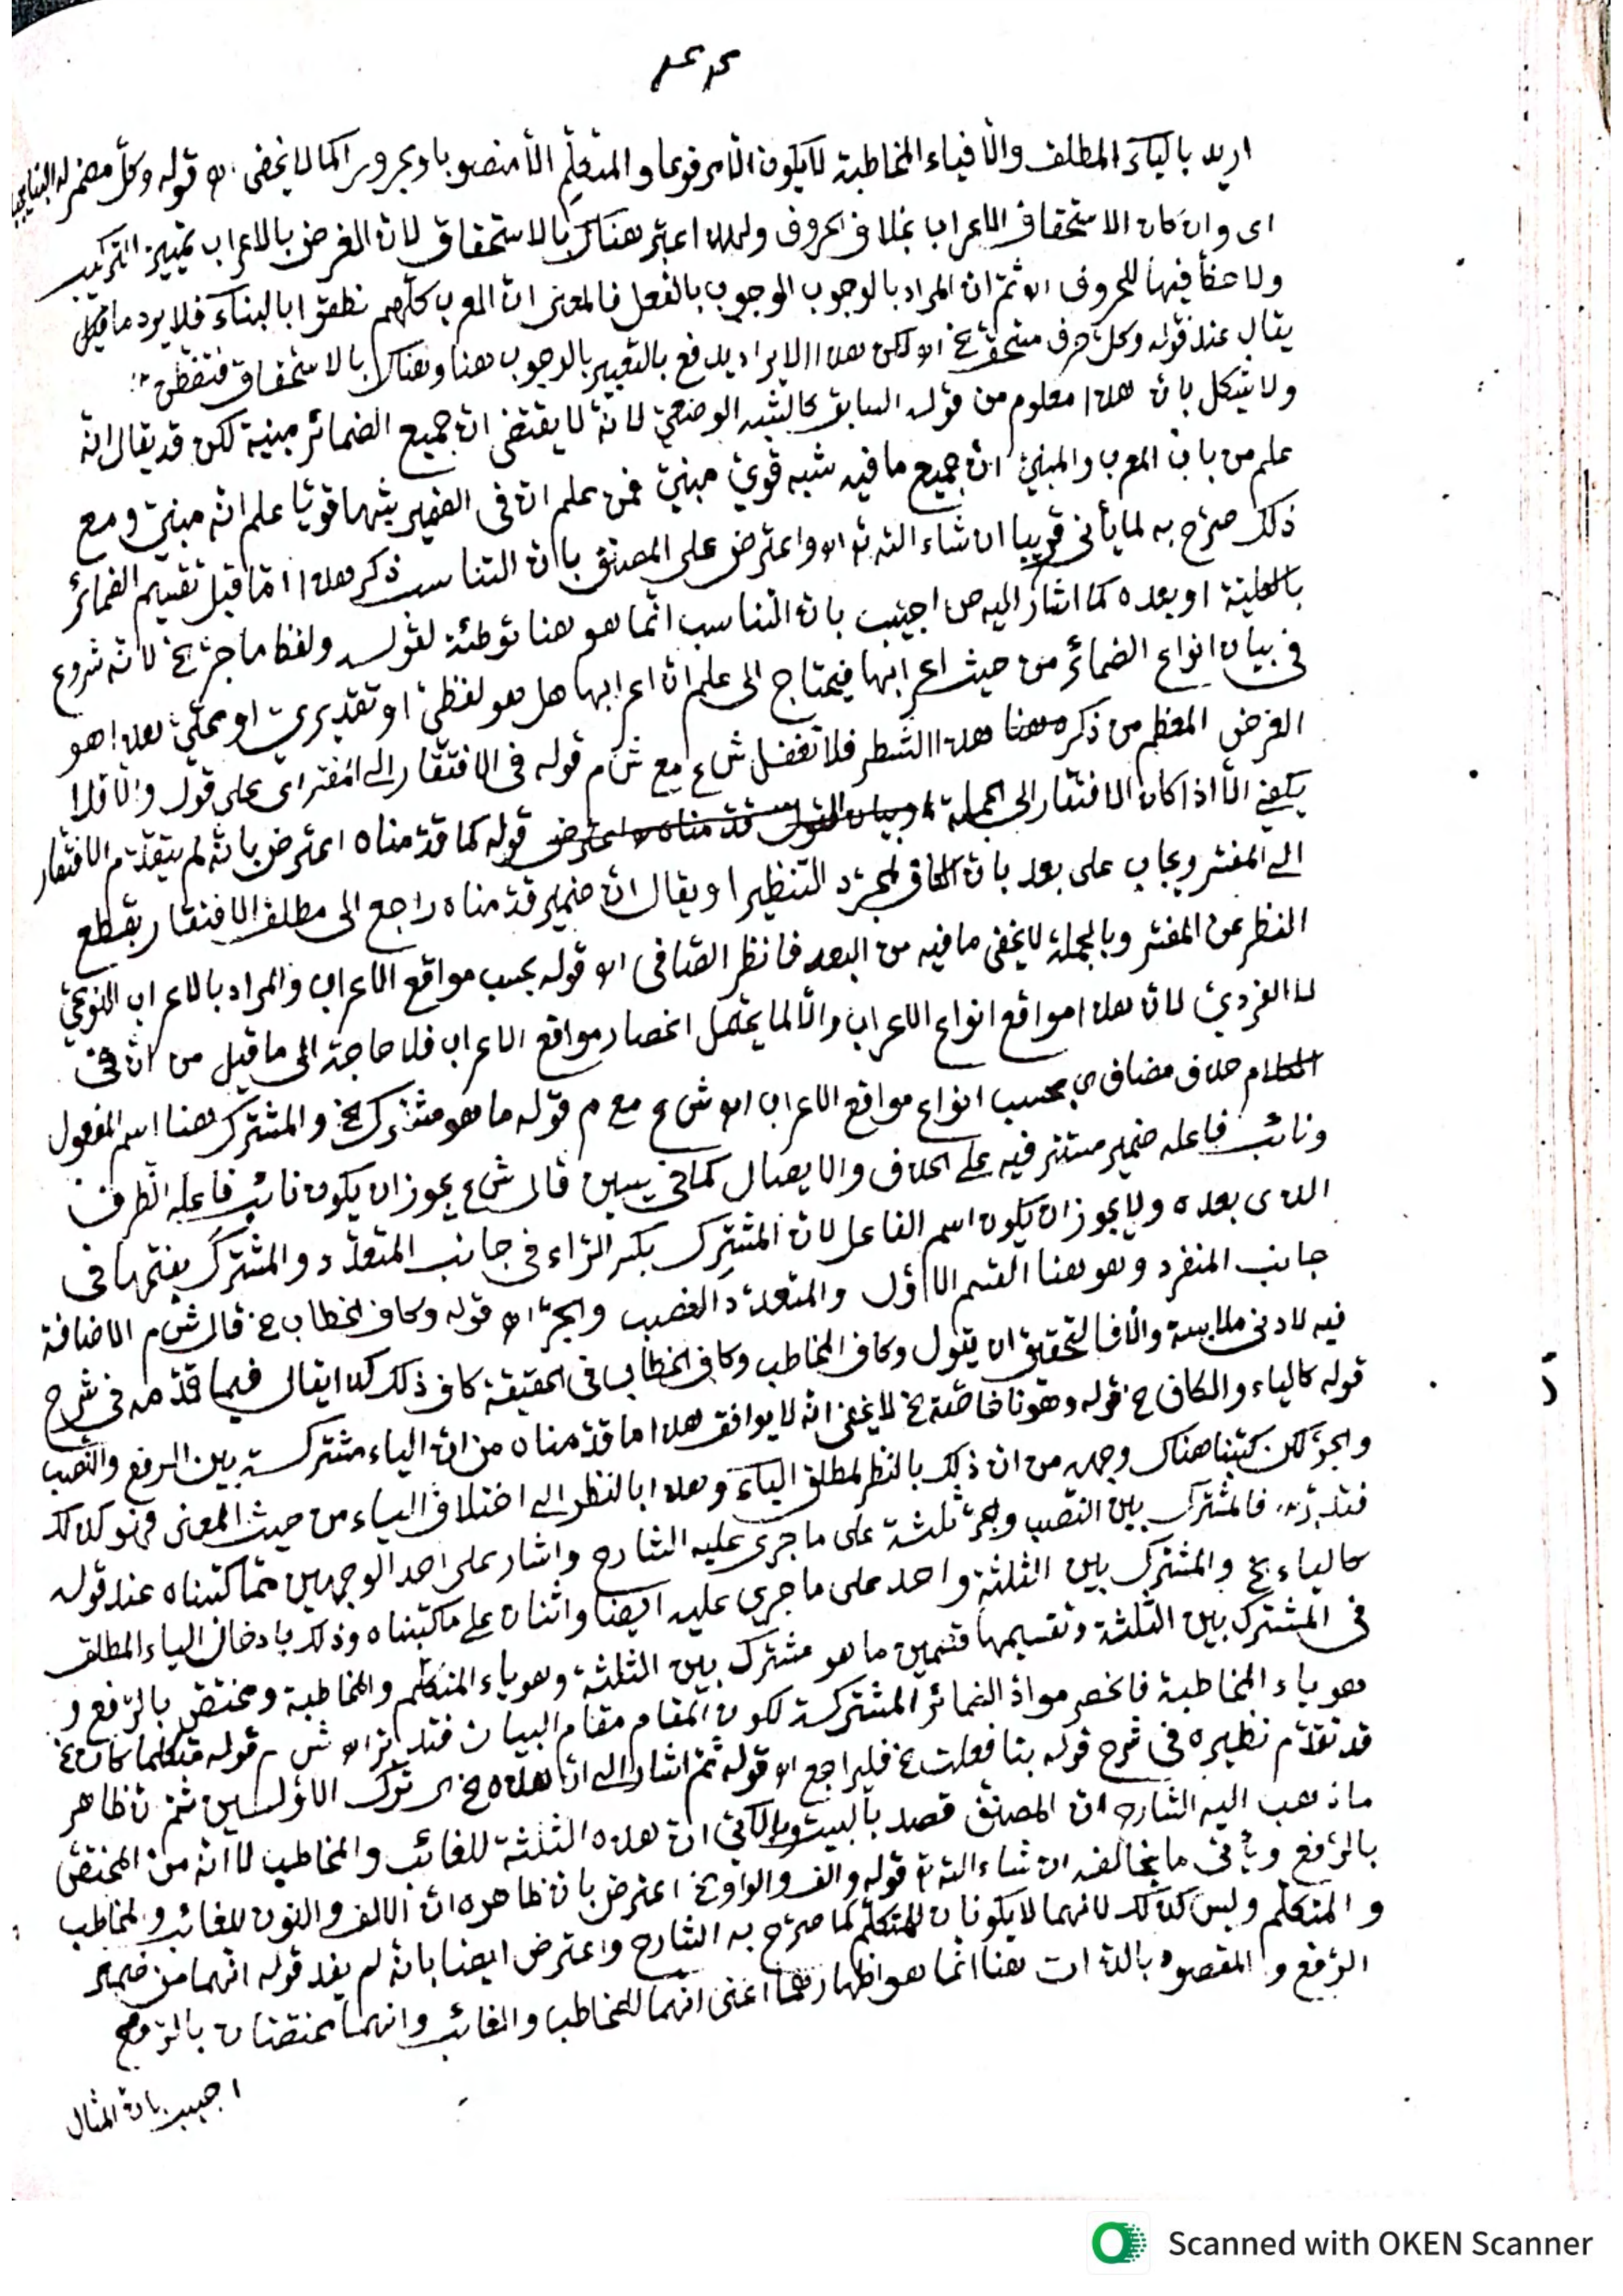 اريد بالياء المطلق والا فياء المخاطبة لا يكون الا مرفوعا والمتكلم الا منصوبا او مجرورا كما لا يخفى اه قوله وكل مضمر له البنا يجب
اى وان كان الاستحقاق الاعراب بخلاف الحروف ولهذا اعتبر هناك بالاستحقاق لان الغرض بالاعراب تمييز التركيب
ولا حظ فيها للحروف اه ثم ان المراد بالوجوب الوجوب بالفعل فالمعنى ان العرب كلهم نطقوا بالبناء فلا يرد ما قيل
يقال عند قوله وكل حرف مستحق الخ اه لكن هذا الايراد يدفع بالتعبير بالوجوب هنا وهناك بالاستحقاق فتفطن
ولا يشكل بان هذا معلوم من قوله السابق كالشبه الوضعي لانه لا يقتضى ان جميع الضمائر مبنية لكن قد يقال انه
علم من باب المعرب والمبني ان جميع ما فيه شبه قوي مبني فمن علم ان فى الضمير شبها قويا علم انه مبني ومع
ذلك صرح به لما يأتى قريبا ان شاء الله تع اه واعترض على المصنف بان التناسب ذكر هذا اما قبل تقسيم الضمائر
او بعده كما اشار اليه ص اجيب بان التناسب انما هو هنا توطئة لقوله ولفظ ما جر الخ لانه شروع
فى بيان انواع الضمائر من حيث اعرابها فيحتاج الى علم ان اعرابها هل هو لفظي او تقديري او محلي هذا هو
الغرض المعظم من ذكره هنا هذا الشطر فلا تغفل ش ع مع ش م قوله فى الافتقار الى المفسر اى على قول والا فلا
يكفى الا اذا كان الافتقار الى الجملة قوله كما قدمناه اعترض بانه لم يتقدم الافتقار
الى المفسر ويجاب على بعد بان الكاف لمجرد التنظير او يقال ان ضمير قدمناه راجع الى مطلق الافتقار بقطع
النظر عن المفسر وبالجملة لا يخفى ما فيه من البعد فانظر الصافى اه قوله بحسب مواقع الاعراب والمراد بالاعراب النوعي
لا الفردي لان هذا مواقع انواع الاعراب والا لما يحصل انحصار مواقع الاعراب فلا حاجة الى ما قيل من ان فى
الكلام حذف مضاف اى بحسب انواع مواقع الاعراب اه ش ع مع م قوله ما هو مشترك الخ والمشترك هنا اسم المفعول
ونائب فاعله ضمير مستتر فيه على الحذف والايصال كما فى يسين قال ش ع يجوز ان يكون نائب فاعله الظرف
الذى بعده ولا يجوز ان يكون اسم الفاعل لان المشترك بكسر الراء فى جانب المتعدد والمشترك بفتحها فى
جانب المنفرد وهو هنا القسم الاول والمتعدد النصب والجر اه قوله وكاف الخطاب الخ قال ش م الاضافة
فيه لادنى ملابسة والا فالتحقيق ان يقول وكاف المخاطب وكاف الخطاب فى الحقيقة كاف ذلك كذا يقال فيما قدمه فى شرح
قوله كالياء والكاف الخ قوله وهو نا خاصة الخ لا يخفى انه لا يوافق هذا ما قدمناه من ان الياء مشتركة بين الرفع والنصب
والجر لكن كتبنا هناك وجهه من ان ذلك بالنظر لمطلق الياء وهذا بالنظر الى اختلاف الياء من حيث المعنى فهو كذلك
فتدبر فالمشترك بين النصب والجر ثلثة على ما جرى عليه الشارح واشار على احد الوجهين مما كتبناه عند قوله
كالياء الخ والمشترك بين الثلثة واحد على ما جرى عليه ايضا واثنان على ما كتبناه وذلك بادخال الياء المطلق
فى المشترك بين الثلثة وتقسيمها قسمين ما هو مشترك بين الثلثة وهو ياء المتكلم والمخاطبة ومختص بالرفع و
هو ياء المخاطبة فانحصر مواد الضمائر المشتركة لكون المقام مقام البيان فتدبر اه ش قوله متكلما كان الخ
قد تقدم نظيره فى شرح قوله بتا فعلت الخ فليراجع اه قوله ثم اشار الى ان هذه الخ اى ترك الاولين ثم ان ظاهر
ما ذهب اليه الشارح ان المصنف قصد بالبيت ان هذه الثلثة للغائب والمخاطب لا انه من المختص
بالرفع ويأتى ما يخالفه ان شاء الله تع قوله والف والواو الخ اعترض بان ظاهره ان الالف والنون للغائب والمخاطب
و المتكلم وليس كذلك لانهما لا يكونان للمتكلم كما صرح به الشارح واعترض ايضا بانه لم يفد قوله انهما من ضمير
الرفع و المقصود بالذات هنا انما هو اظهارهما اعنى انهما للمخاطب والغائب وانهما مختصان بالرفع
اجيب بان المثال
Scanned with OKEN Scanner